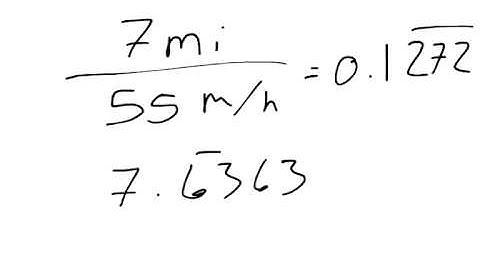 7mi
55 m/h = 0.1272
7.6363